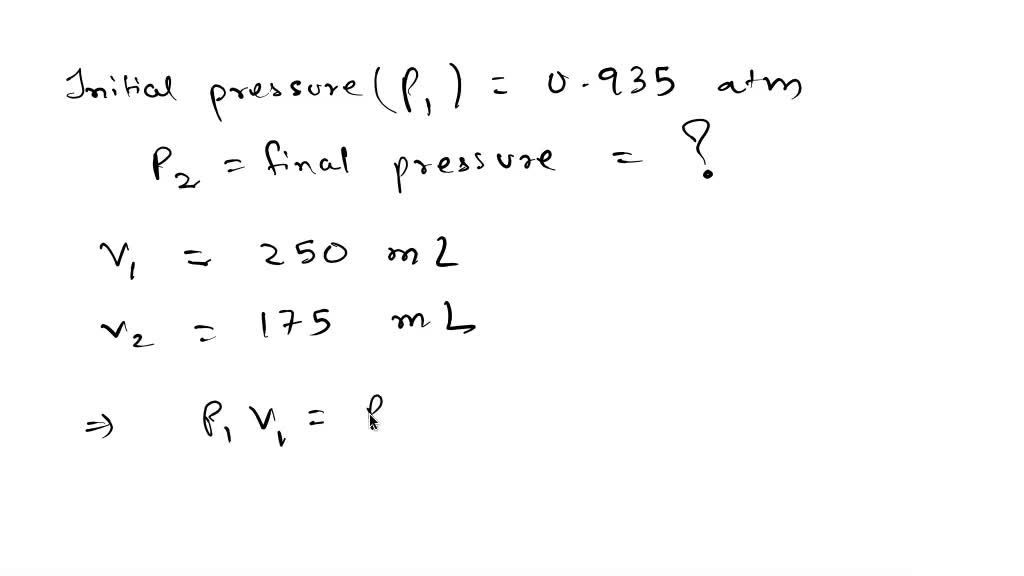 Initial pressure (P₁) = 0.935 atm
P₂ = final pressure = ?
V₁ = 250 mL
V₂ = 175 mL
⇒ P₁ V₁ = P